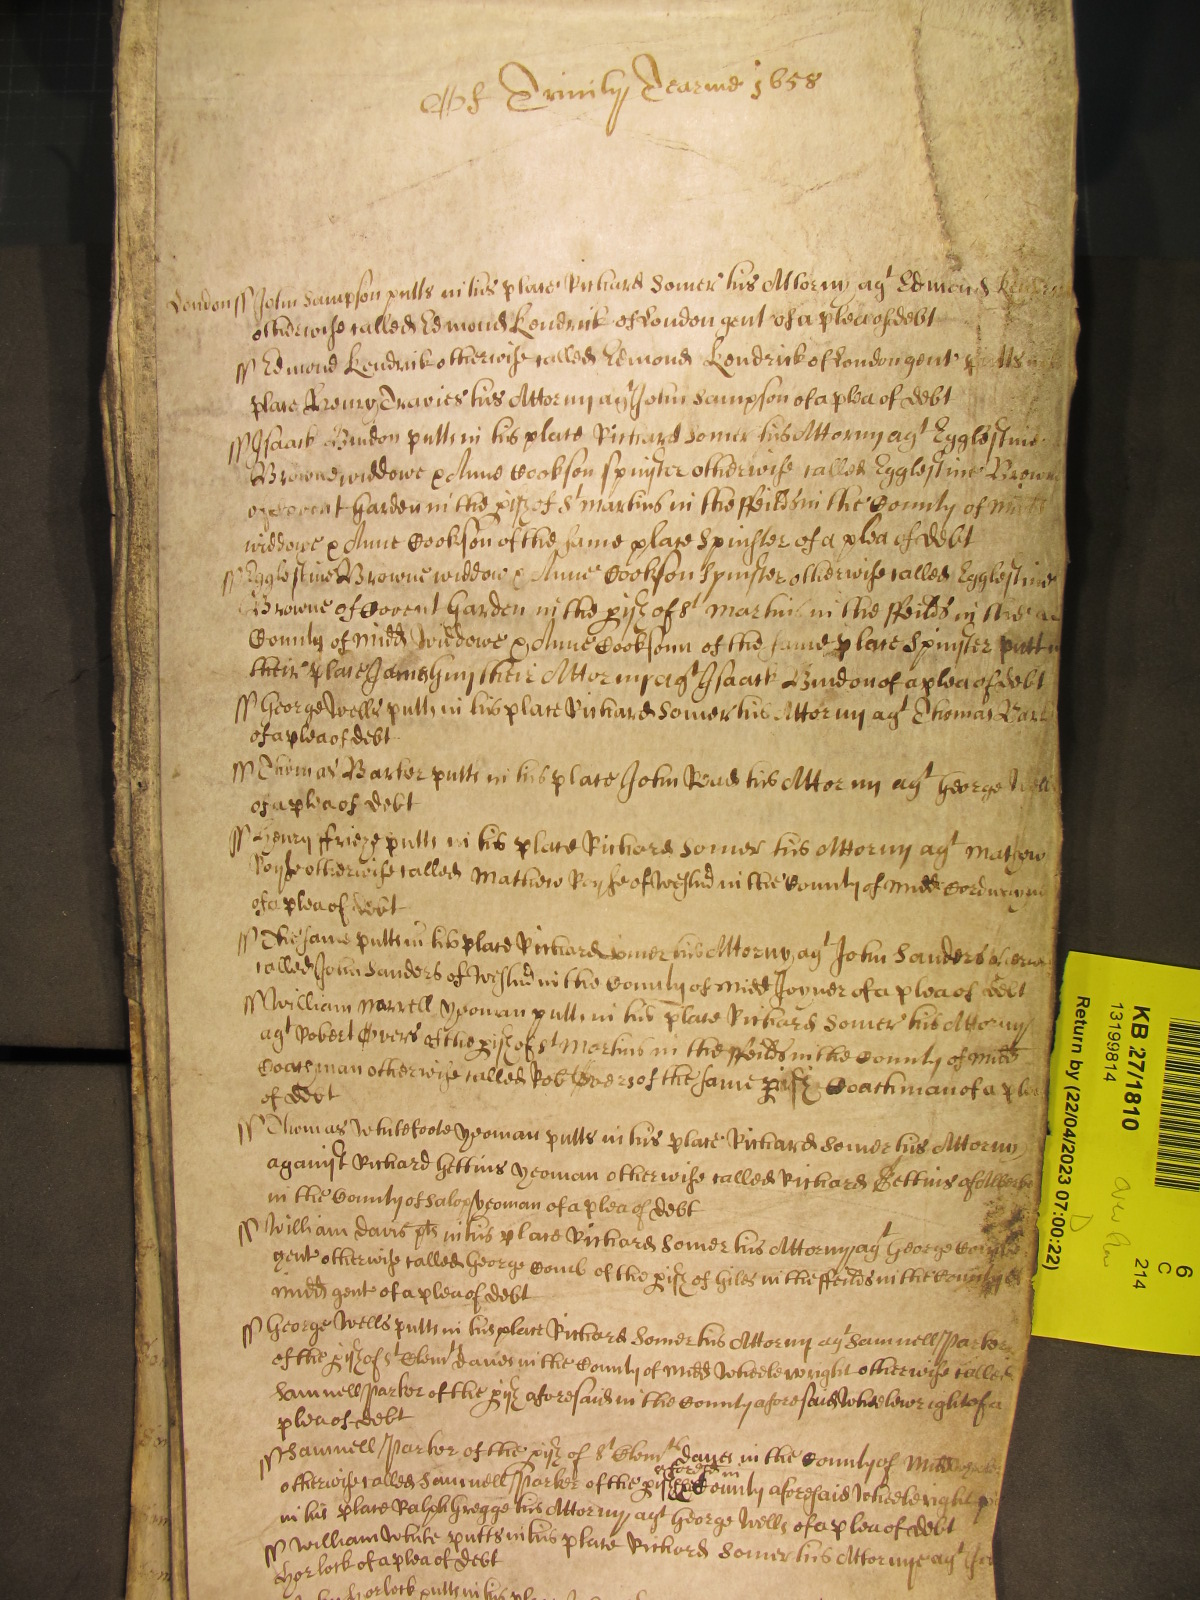 Of Trinity Tearme 1658
London ss John Sampson putts in his place Richard Somer his Attorny agt Edmond
otherwise called Edmond Kendrick of London gent of a plea of debt
ss Edmond Kendrick otherwise called Edmond Kendrick of London gent putts
place Henry Travies his Attorny agt John Sampson of a plea of debt
ss Isaack Bindon putts in his place Richard Somer his Attorny agt Egglestine
Browne widdowe & Anne Cookson spinster otherwise called Egglestine Browne
of Covent Garden in the pish of St Martins in the ffeilds in the County of Midd
widdowe & Anne Cookson of the same place Spinster of a plea of debt
ss Egglestine Browne widdow & Anne Cookson Spinster otherwise called Egglestine
Browne of Covent Garden in the pish of St Martins in the ffeilds in the
County of Midd Widdowe & Anne Cooksonn of the same place Spinster putt
their place James Guy their Attorny agt Isaack Bindon of a plea of debt
ss George Wells putts in his place Richard Somer his Attorny agt Thomas
of a plea of debt
ss Thomas Barker putts in his place John Read his Attorny agt George
of a plea of debt
ss Henry ffrieze putts in his place Richard Somer his Attorny agt Mathew
otherwise called Mathew of Westmd in the County of Midd
of a plea of debt
ss The same putts in his place Richard Somer his Attorny agt John Sanders
called John Sanders of Westmd in the County of Midd Joyner of a plea of debt
ss William Morrell yeoman putts in his place Richard Somer his Attorny
agt Robert Overs of the pish of St Martins in the ffeilds in the County of Midd
Coachman otherwise called Robt Overs of the same pish Coachman of a plea
of debt
ss Thomas Whitefoote yeoman putts in his place Richard Somer his Attorny
against Richard Gettins yeoman otherwise called Richard Gettins of
in the County of Salop yeoman of a plea of debt
ss William Davis pts in his place Richard Somer his Attorny agt George
gent otherwise called George Comb of the pish of Giles in the ffeilds in the County of
Midd gent of a plea of debt
ss George Wells putts in his place Richard Somer his Attorny agt Samuell Parker
of the pish of St Clemt Danes in the County of Midd Wheelewright otherwise called
Samuell Parker of the pish aforesaid in the County aforesaid Wheelewright of a
plea of debt
ss Samuell Parker of the pish of St Clemt Danes in the County of Midd
otherwise called Samuell Parker of the pish aforesd in County aforesaid Wheelewright
in his place Ralph Gregge his Attorny agt George Wells of a plea of debt
ss William White putts in his place Richard Somer his Attornye agt
Horlock of a plea of debt
Horlock putts in his place
KB 27/1810
13199814
Return by (22/04/2023 07:00:22)
6
C
214